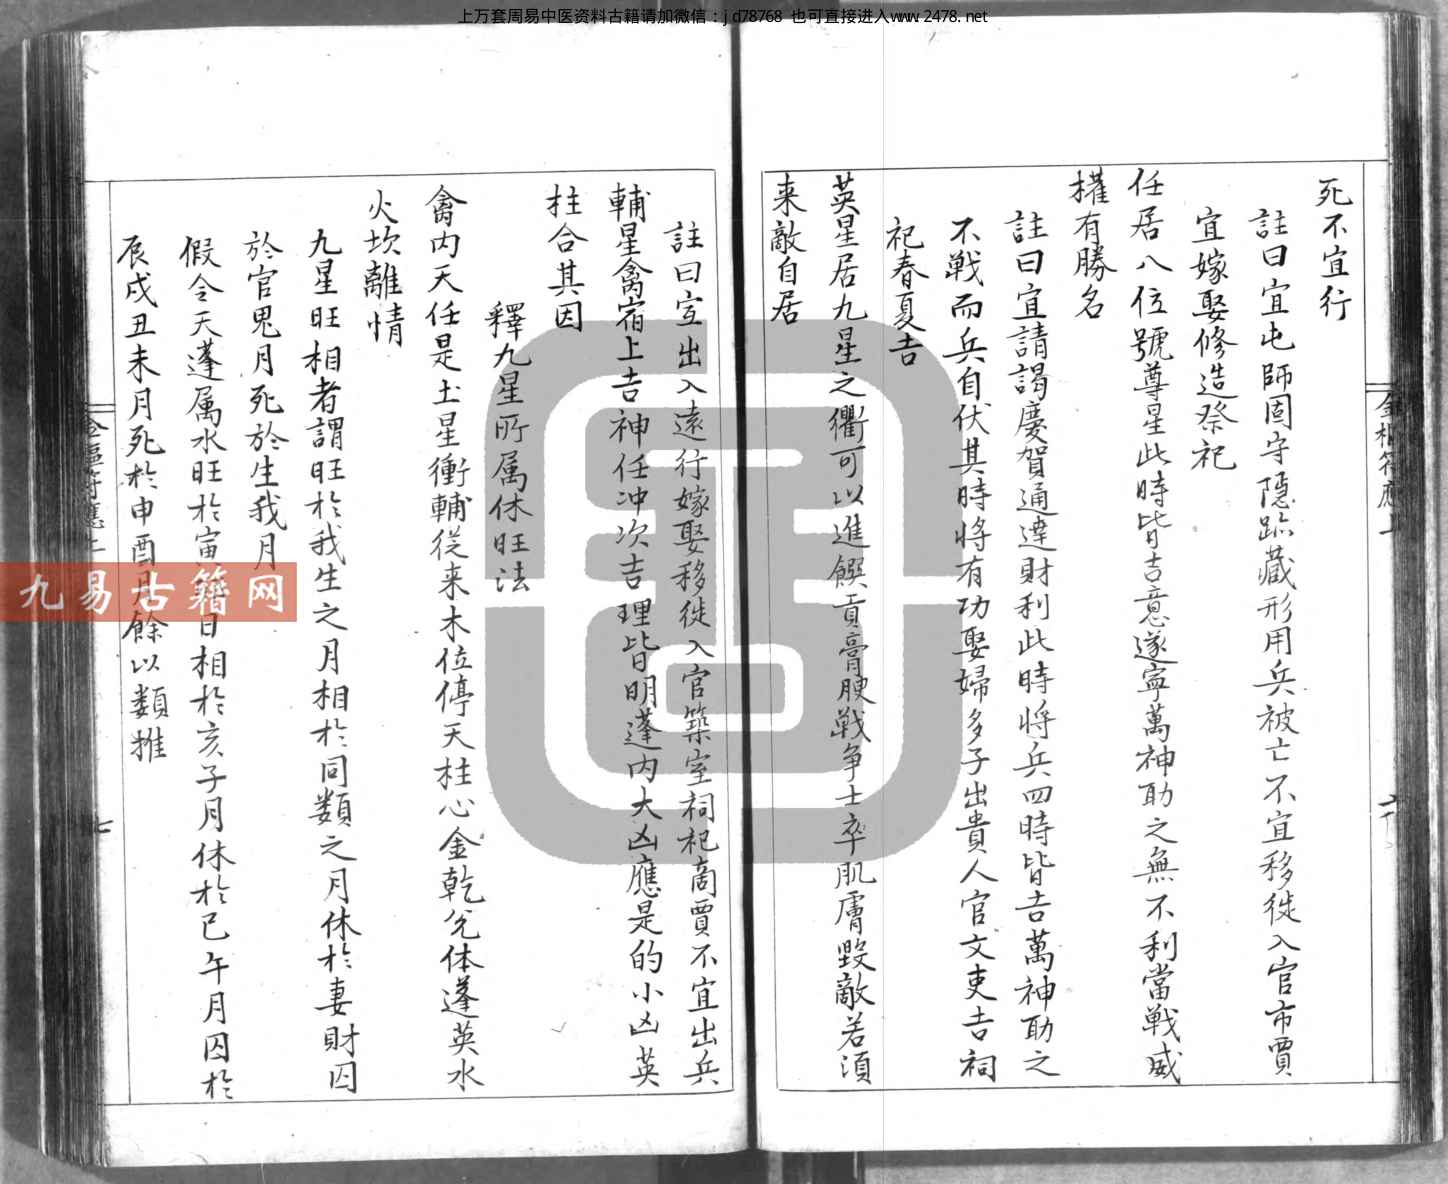 上万套周易中医资料古籍请加微信：jd78768 也可直接进入www.2478.net
死不宜行
註曰宜屯師固守隱跡藏形用兵被亡不宜移徙入官市賈
宜嫁娶修造祭祀
任居八位號尊星此時皆吉意遂寧萬神助之無不利當戦威
權有勝名
註曰宜請謁慶賀通達財利此時將兵四時皆吉萬神助之
不戦而兵自伏其時將有功娶婦多子出貴人官文吏吉祠
祀春夏吉
英星居九星之衢可以進饌貢膏腴戦争士卒肌膚毀敵若須
来敵自居
金樞符應上
六
註曰宜出入遠行嫁娶移徙入官築室祠祀商賈不宜出兵
輔星禽宿上吉神任冲次吉理皆明蓬内大凶應是的小凶英
柱合其因
釋九星所属休旺法
禽内天任是土星衝輔從来木位停天柱心金乾兌体蓬英水
火坎離情
九星旺相者謂旺於我生之月相於同類之月休於妻財囚
於官鬼月死於生我月
假令天蓬属水旺於寅日相於亥子月休於巳午月囚於
辰戌丑未月死於申酉月餘以類推
金樞符應上
七
九易古籍网